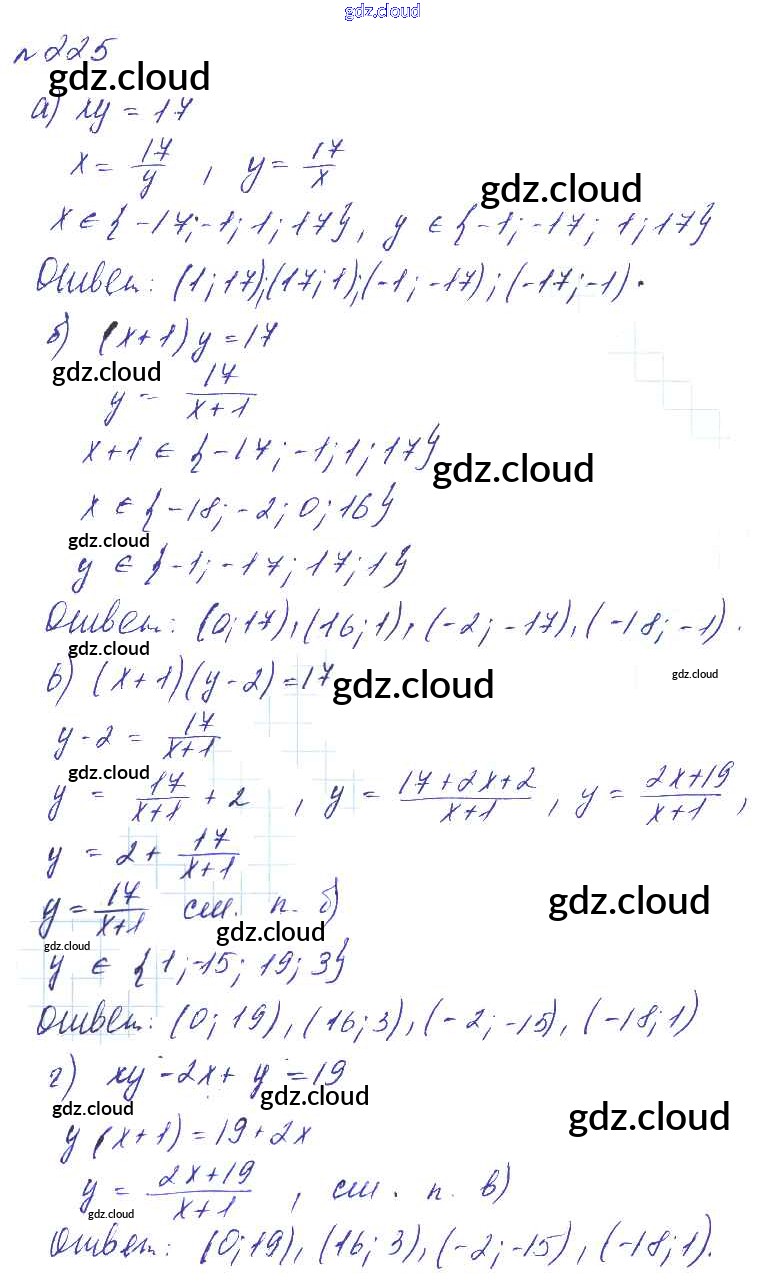 gdz.cloud
№225
gdz.cloud
а) xy = 17
x = 17/y , y = 17/x
gdz.cloud
x ∈ {-17; -1; 1; 17}, y ∈ {-1; -17; 1; 17}
Ответ: (1; 17); (17; 1); (-1; -17); (-17; -1).
б) (x+1)y = 17
gdz.cloud
y = 17/(x+1)
x+1 ∈ {-17; -1; 1; 17}
gdz.cloud
x ∈ {-18; -2; 0; 16}
gdz.cloud
y ∈ {-1; -17; 17; 1}
Ответ: (0; 17), (16; 1), (-2; -17), (-18; -1).
gdz.cloud
в) (x+1)(y-2) = 17
gdz.cloud
gdz.cloud
y-2 = 17/(x+1)
gdz.cloud
y = 17/(x+1) + 2 , y = (17+2x+2)/(x+1) , y = (2x+19)/(x+1) ,
y = 2 + 17/(x+1)
y = 17/(x+1) см. п. б)
gdz.cloud
gdz.cloud
gdz.cloud
y ∈ {1; -15; 19; 3}
Ответ: (0; 19), (16; 3), (-2; -15), (-18; 1)
г) xy - 2x + y = 19
gdz.cloud
gdz.cloud
gdz.cloud
y(x+1) = 19+2x
y = (2x+19)/(x+1) , см. п. в)
gdz.cloud
Ответ: (0; 19), (16; 3), (-2; -15), (-18; 1).